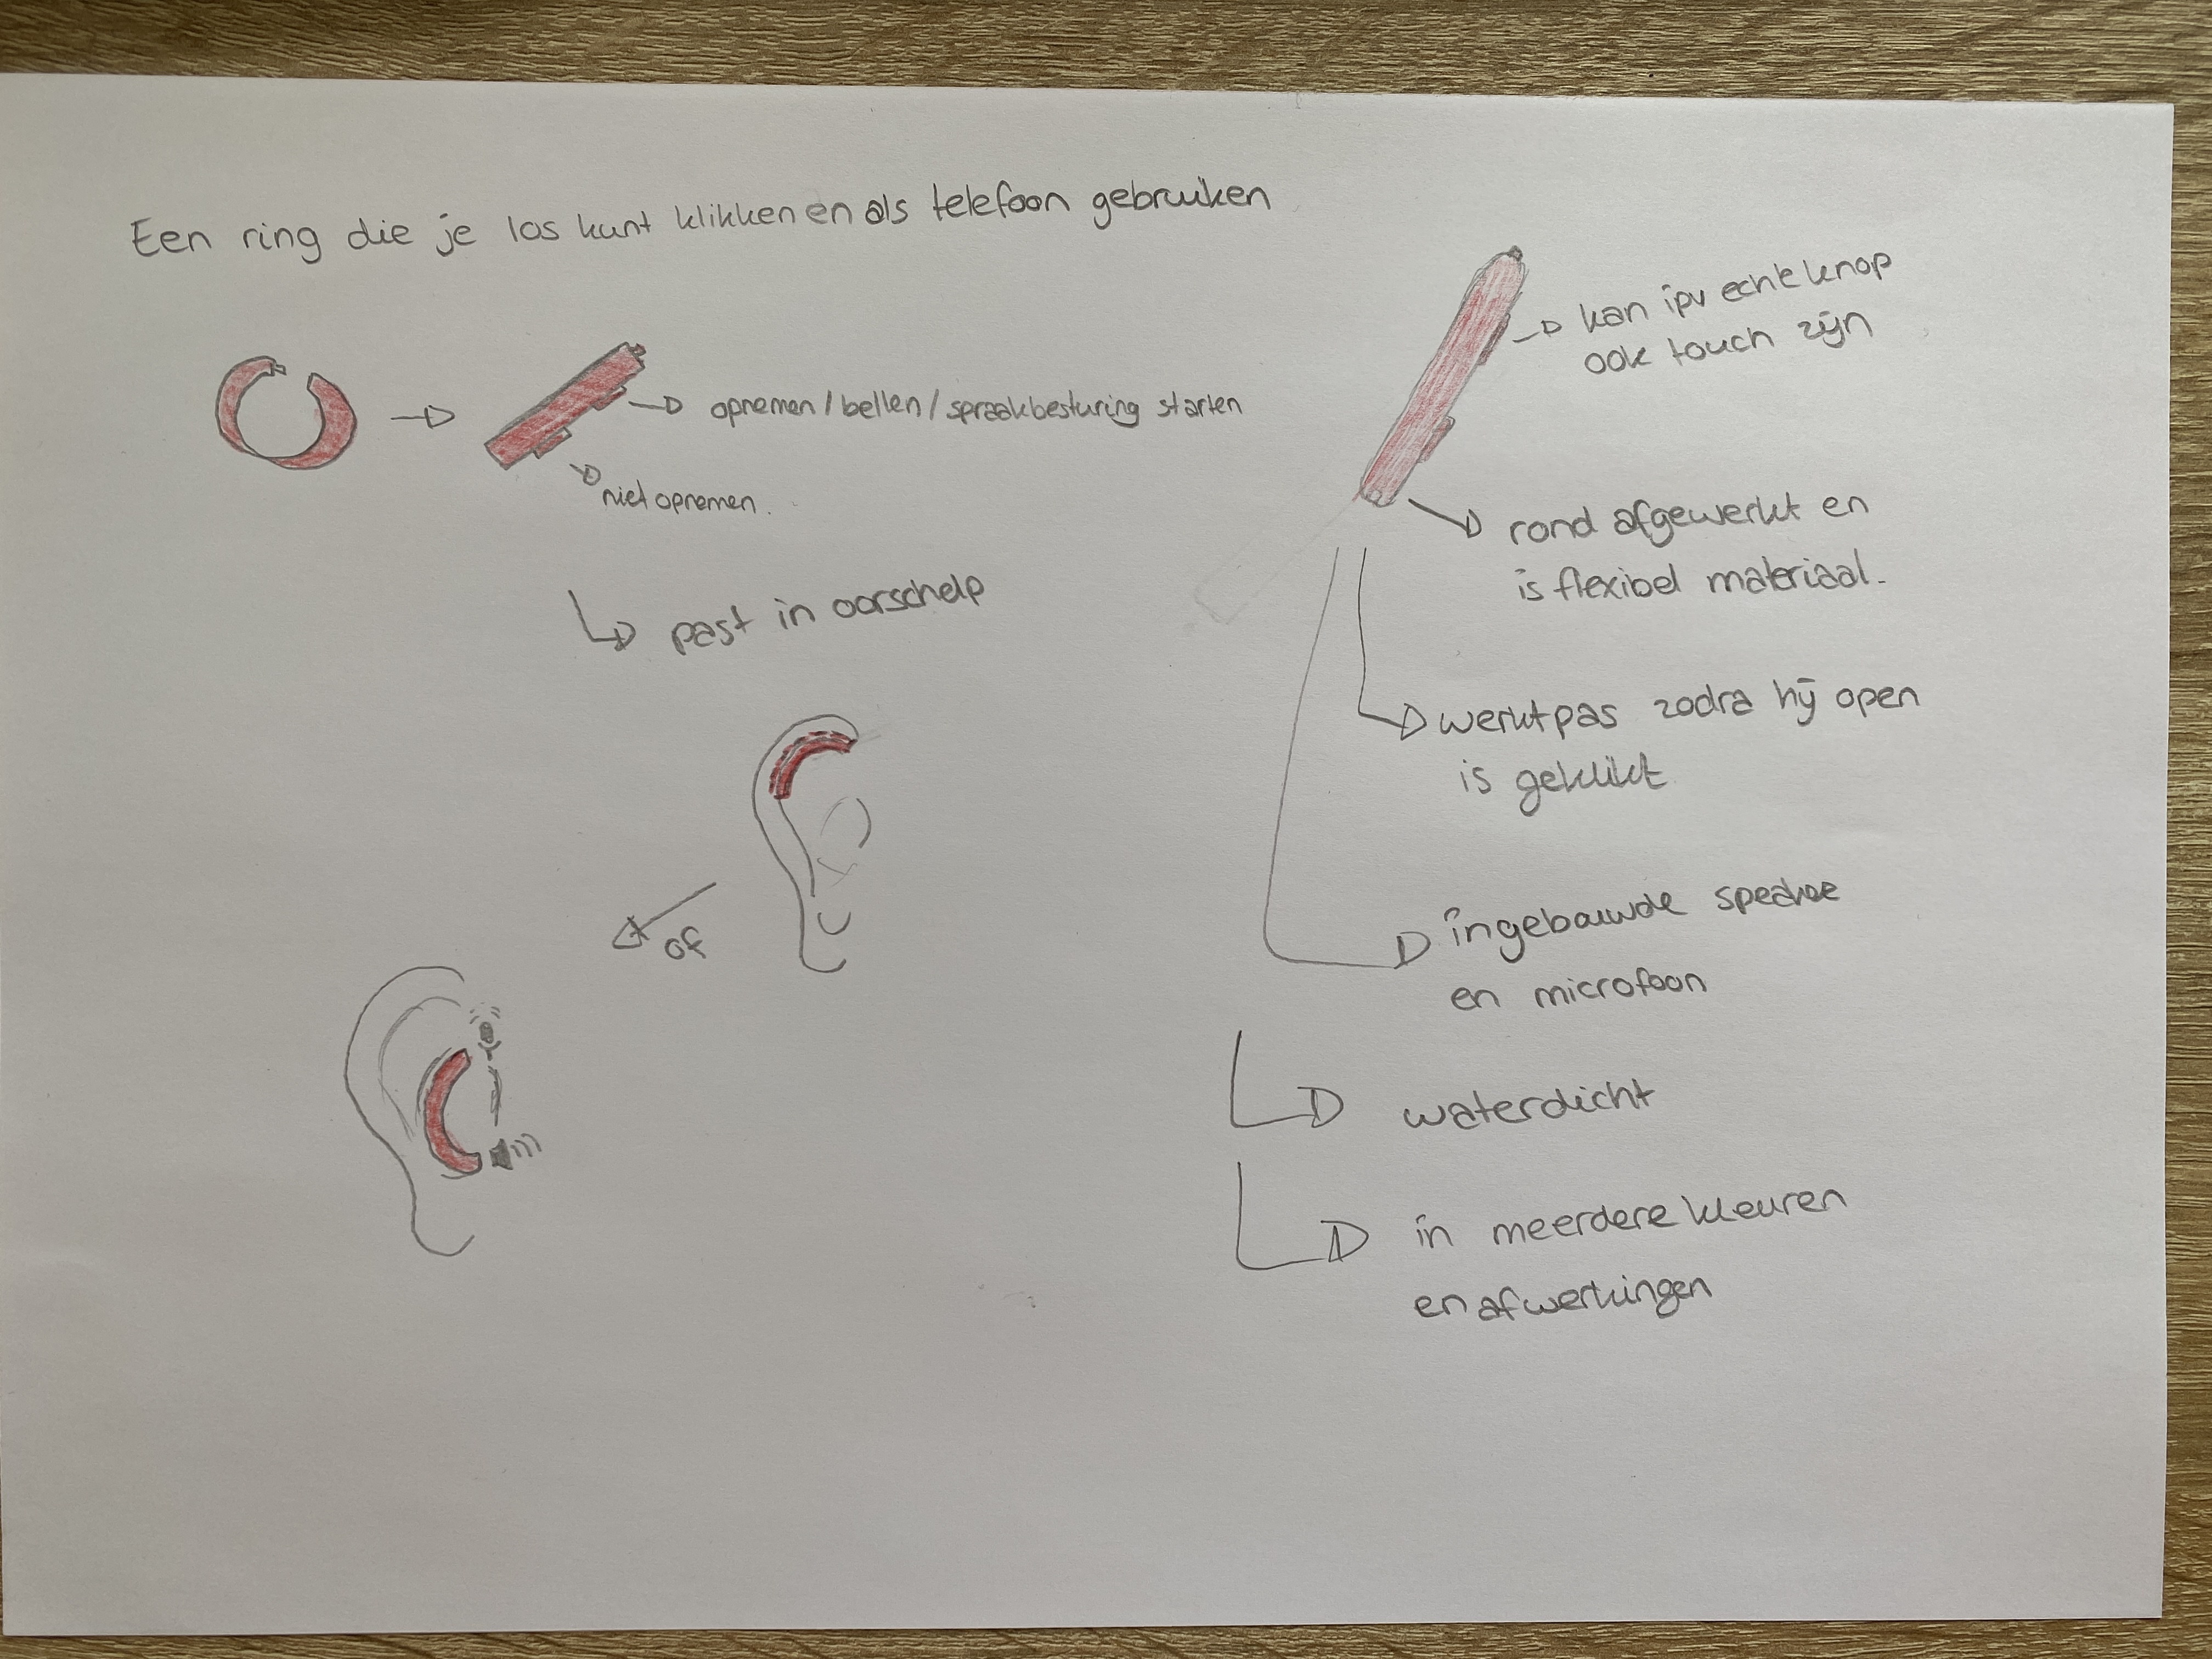 Een ring die je los kunt klikken en als telefoon gebruiken
opnemen / bellen / spraakbesturing starten
niet opnemen.
past in oorschelp
of
kan ipv echte knop
ook touch zijn
rond afgewerkt en
is flexibel materiaal.
werkt pas zodra hij open
is geklikt
ingebouwde
en microfoon
waterdicht
in meerdere kleuren
en afwerkingen